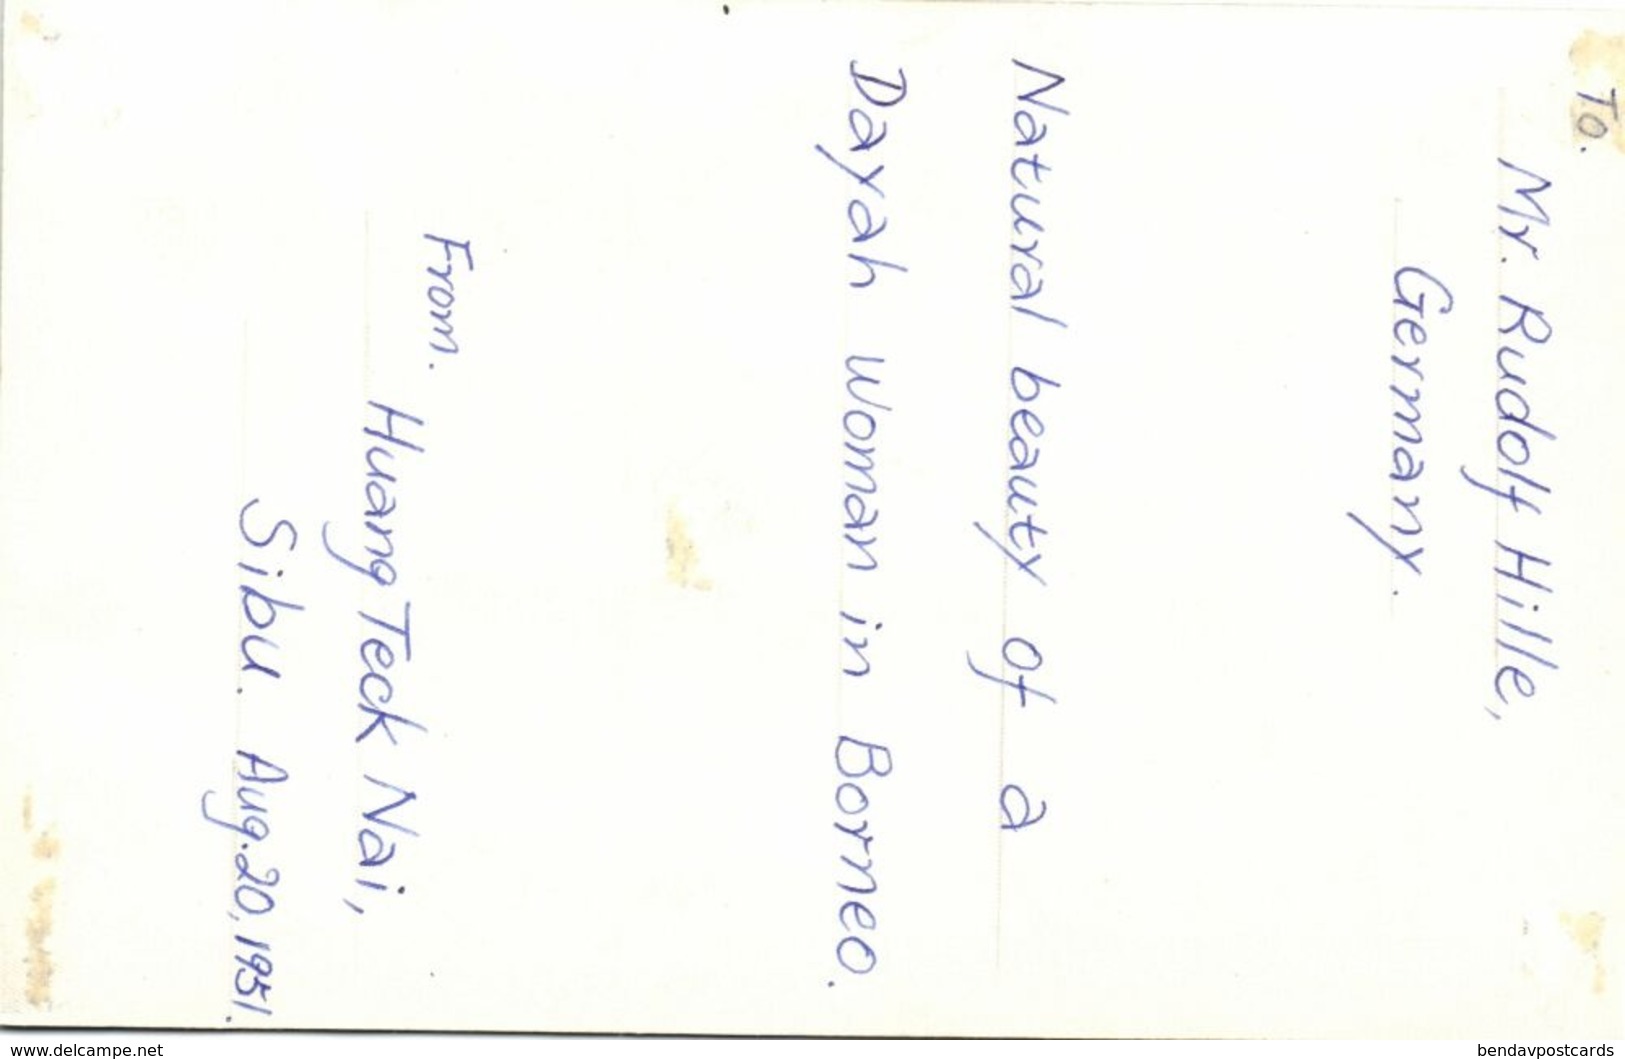 To.
Mr. Rudolf Hille,
Germany.
Natural beauty of a
Dayah woman in Borneo.
From.
Huang Teck Nai,
Sibu. Aug. 20, 1951.
www.delcampe.net
bendavpostcards